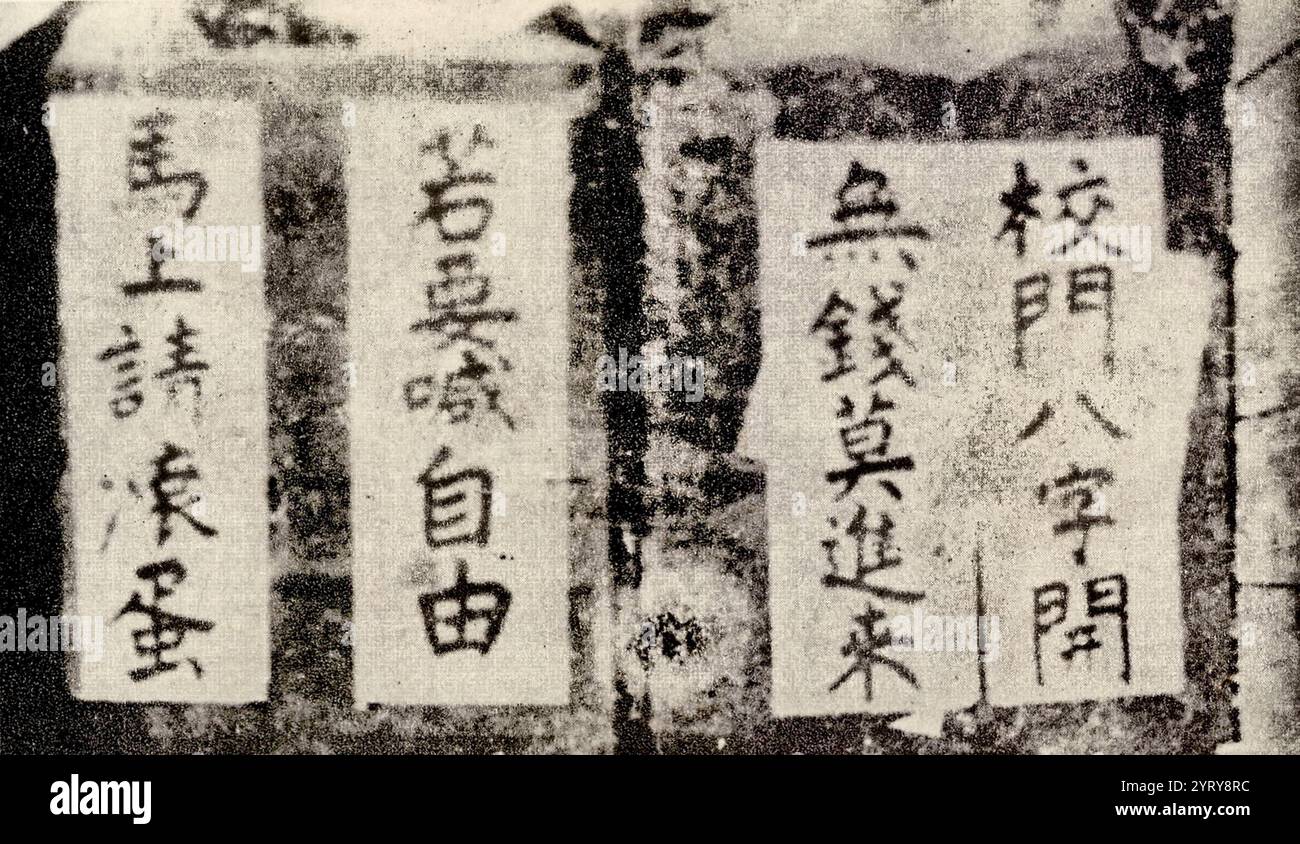 校門八字開
無錢莫進來
若要喊自由
馬上請滚蛋
alamy
Image ID: 2RY8RC
www.alamy.com